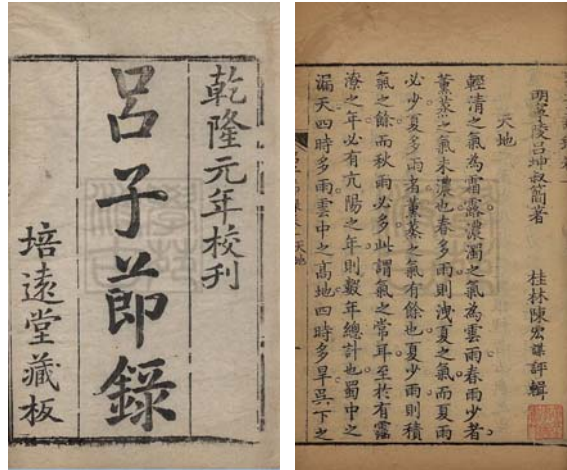 乾隆元年校刊
呂子節錄
培遠堂藏板
明寧陵呂坤叔簡著　桂林陳宏謀評輯
天地
輕清之氣為霜露濃濁之氣為雲雨春雨少者
薰蒸之氣未濃也春多雨則洩夏之氣而夏雨
必少夏多雨者薰蒸之氣有餘也夏少雨則積
氣之餘而秋雨必多此謂氣之常耳至於有霪
潦之年必有亢陽之年則數年總計也蜀中之
漏天四時多雨雲中之高地四時多旱吳下之